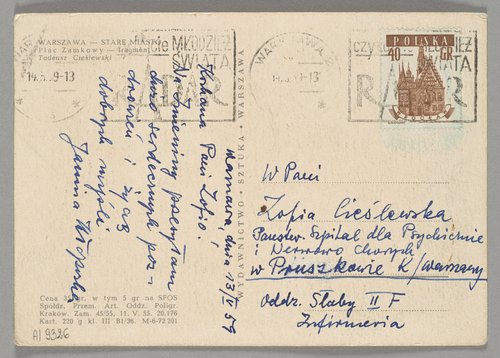 WARSZAWA — STARE MIASTO
Plac Zamkowy — fragment
Tadeusz Cieślewski
WARSZAWA
14.5.59-13
MŁODZIEŻ
ŚWIATA
RADAR
WARSZAWA
59-13
MŁODZIEŻ
ŚWIATA
RADAR
POLSKA
40 GR
WYDAWNICTWO • SZTUKA • WARSZAWA
Warszawa, dnia 13/V 59
Kochana Pani Zofio!
Na Imieniny przesyłam
dużo serdecznych poz-
drowień i życzę
dobrych myśli
Janina
W Pani
Zofia Cieślewska
Państw. Szpital dla Psychicznie
i Nerwowo Chorych
w Pruszkowie K/Warszawy
Oddz. Słaby II F
Infirmeria
Cena 35 gr, w tym 5 gr na SFOS
Spółdz. Przem. Art. Oddz. Poligr.
Kraków. Zam. 45/55, 11. V. 55. 20.176
Kart. 220 g kl. III B1/36. M-6-72 201
AI 9326